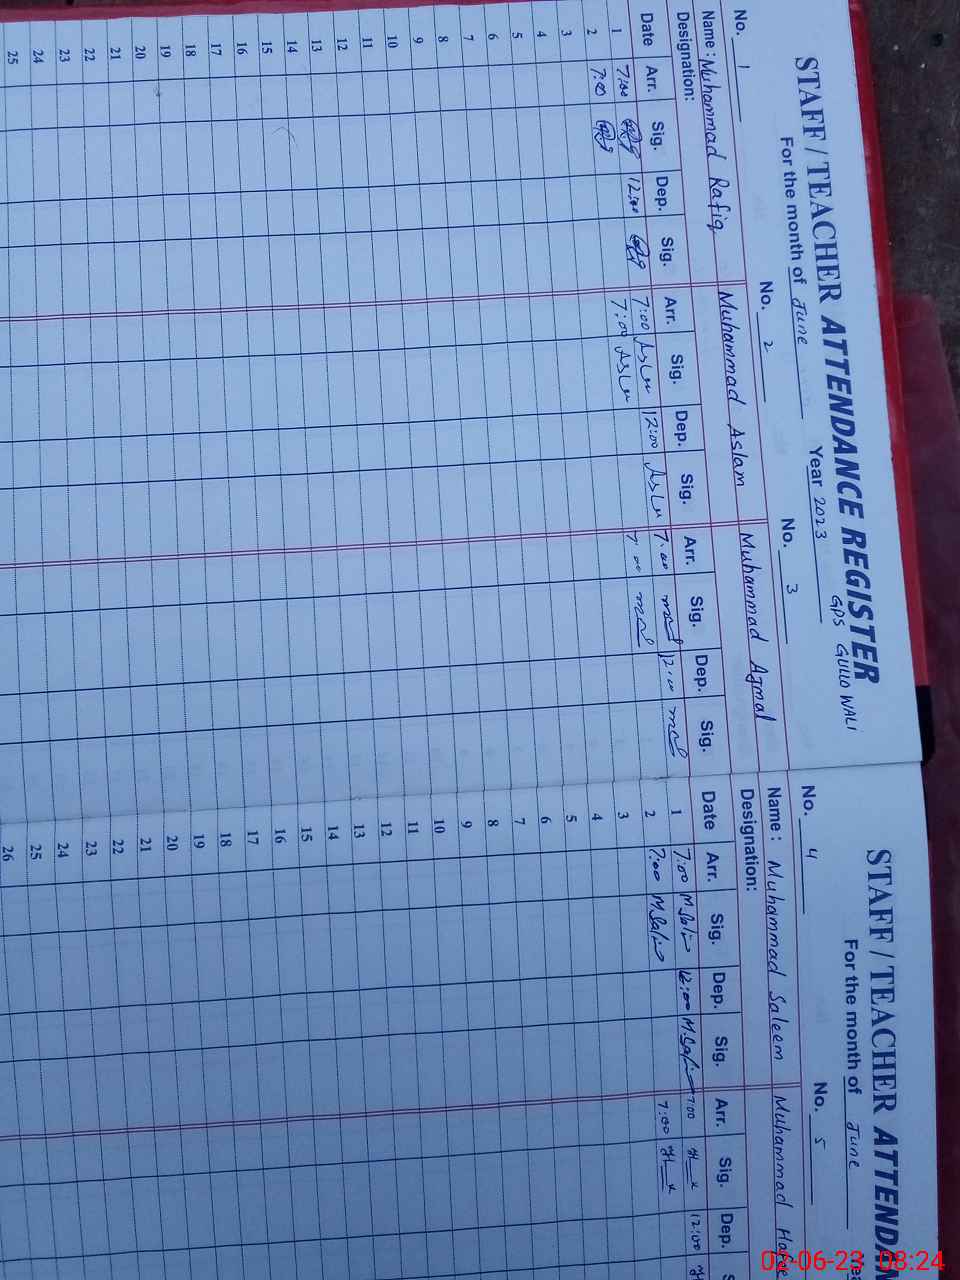 STAFF / TEACHER ATTENDANCE REGISTER
GPS GULLO WALI
For the month of June Year 2023
No. 1 No. 2 No. 3
Name : Muhammad Rafiq Muhammad Aslam Muhammad Ajmal
Designation:
Date Arr. Sig. Dep. Sig. Arr. Sig. Dep. Sig. Arr. Sig. Dep. Sig.
1 7:00 12:00 7:00 Aslm 12:00 Aslm 7:00 12:00
2 7:00 7:00 Aslm 7:00
3
4
5
6
7
8
9
10
11
12
13
14
15
16
17
18
19
20
21
22
23
24
25
STAFF / TEACHER ATTENDA
For the month of June
No. 4 No. 5
Name : Muhammad Saleem Muhammad
Designation:
Date Arr. Sig. Dep. Sig. Arr. Sig. Dep. S
1 7:00 M.Salim 12:00 M.Salim 7:00 12:00
2 7:00 M.Salim 7:00
3
4
5
6
7
8
9
10
11
12
13
14
15
16
17
18
19
20
21
22
23
24
25
26
02-06-23 08:24